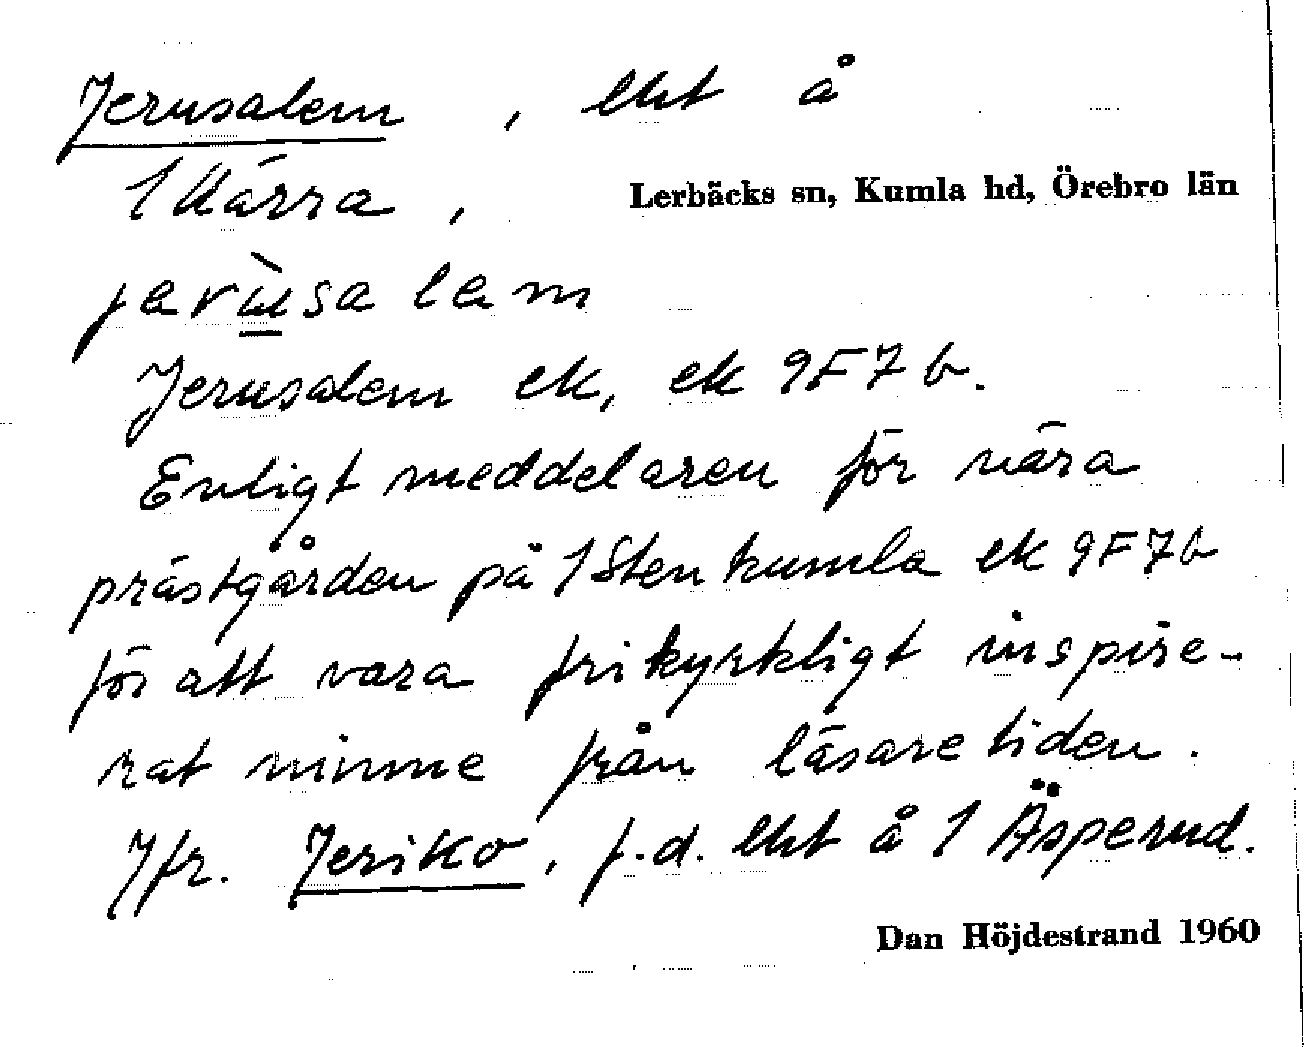 Jerusalem, lht å
1 Kärra, Lerbäcks sn, Kumla hd, Örebro län
jerùsalem
Jerusalem ek, ek 9F7b.
Enligt meddelaren för nära
prästgården på 1 Stenkumla ek 9F7b
för att vara frikyrkligt inspire-
rat minne från läsaretiden.
Jfr. Jeriko, f.d. lht å 1 Äsperud.
Dan Höjdestrand 1960